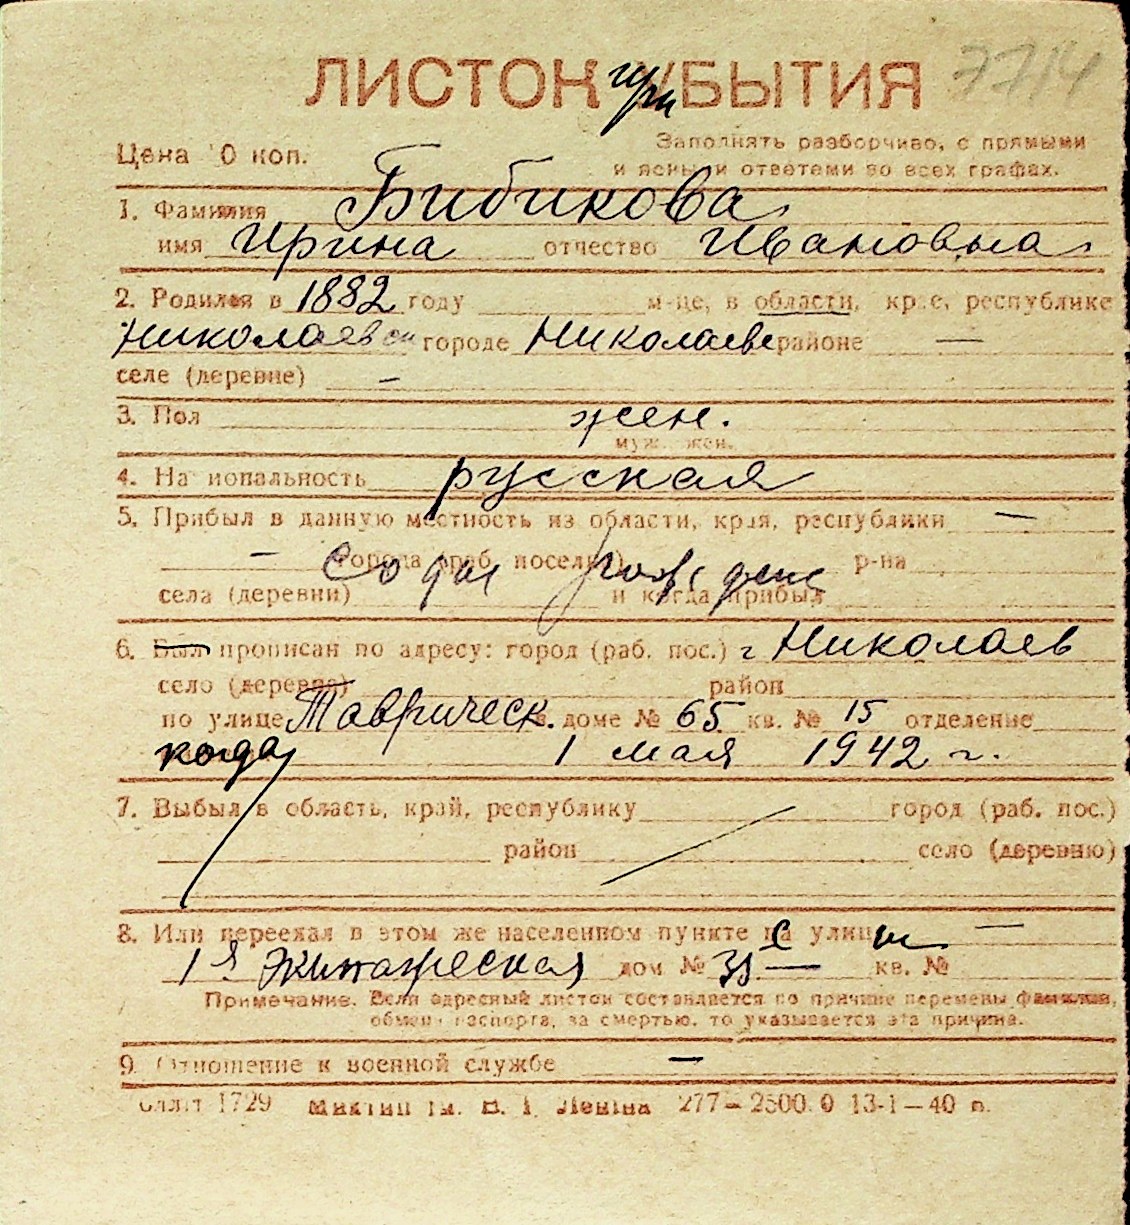 ЛИСТОК при УБЫТИЯ 7714
Цена 10 коп.
Заполнять разборчиво, с прямыми
и ясными ответами во всех графах.
1. Фамилия Бибикова
имя Ирина отчество Ивановна
2. Родился в 1882 году м-це, в области, крае, республике
Николаевск городе Николаеве районе —
селе (деревне) –
3. Пол жен.
муж. жен.
4. Национальность русская
5. Прибыл в данную местность из области, края, республики —
– города (раб. поселка) р-на
со дня рождения
села (деревни) и когда прибыл
6. Был прописан по адресу: город (раб. пос.) г Николаев
село (деревня) район
по улице Таврическ. в доме № 65 кв. № 15 отделение
когда 1 мая 1942 г.
7. Выбыл в область, край, республику город (раб. пос.)
район село (деревню)
8. Или переехал в этом же населенном пункте с улицы —
1я Экипажеская дом № 31 — кв. №
Примечание. Если адресный листок составляется по причине перемены фамилии,
обмена паспорта, за смертью, то указывается эта причина.
9. Отношение к военной службе —
1729 ім. В. І. Леніна 277–2500.0 13-1–40 р.